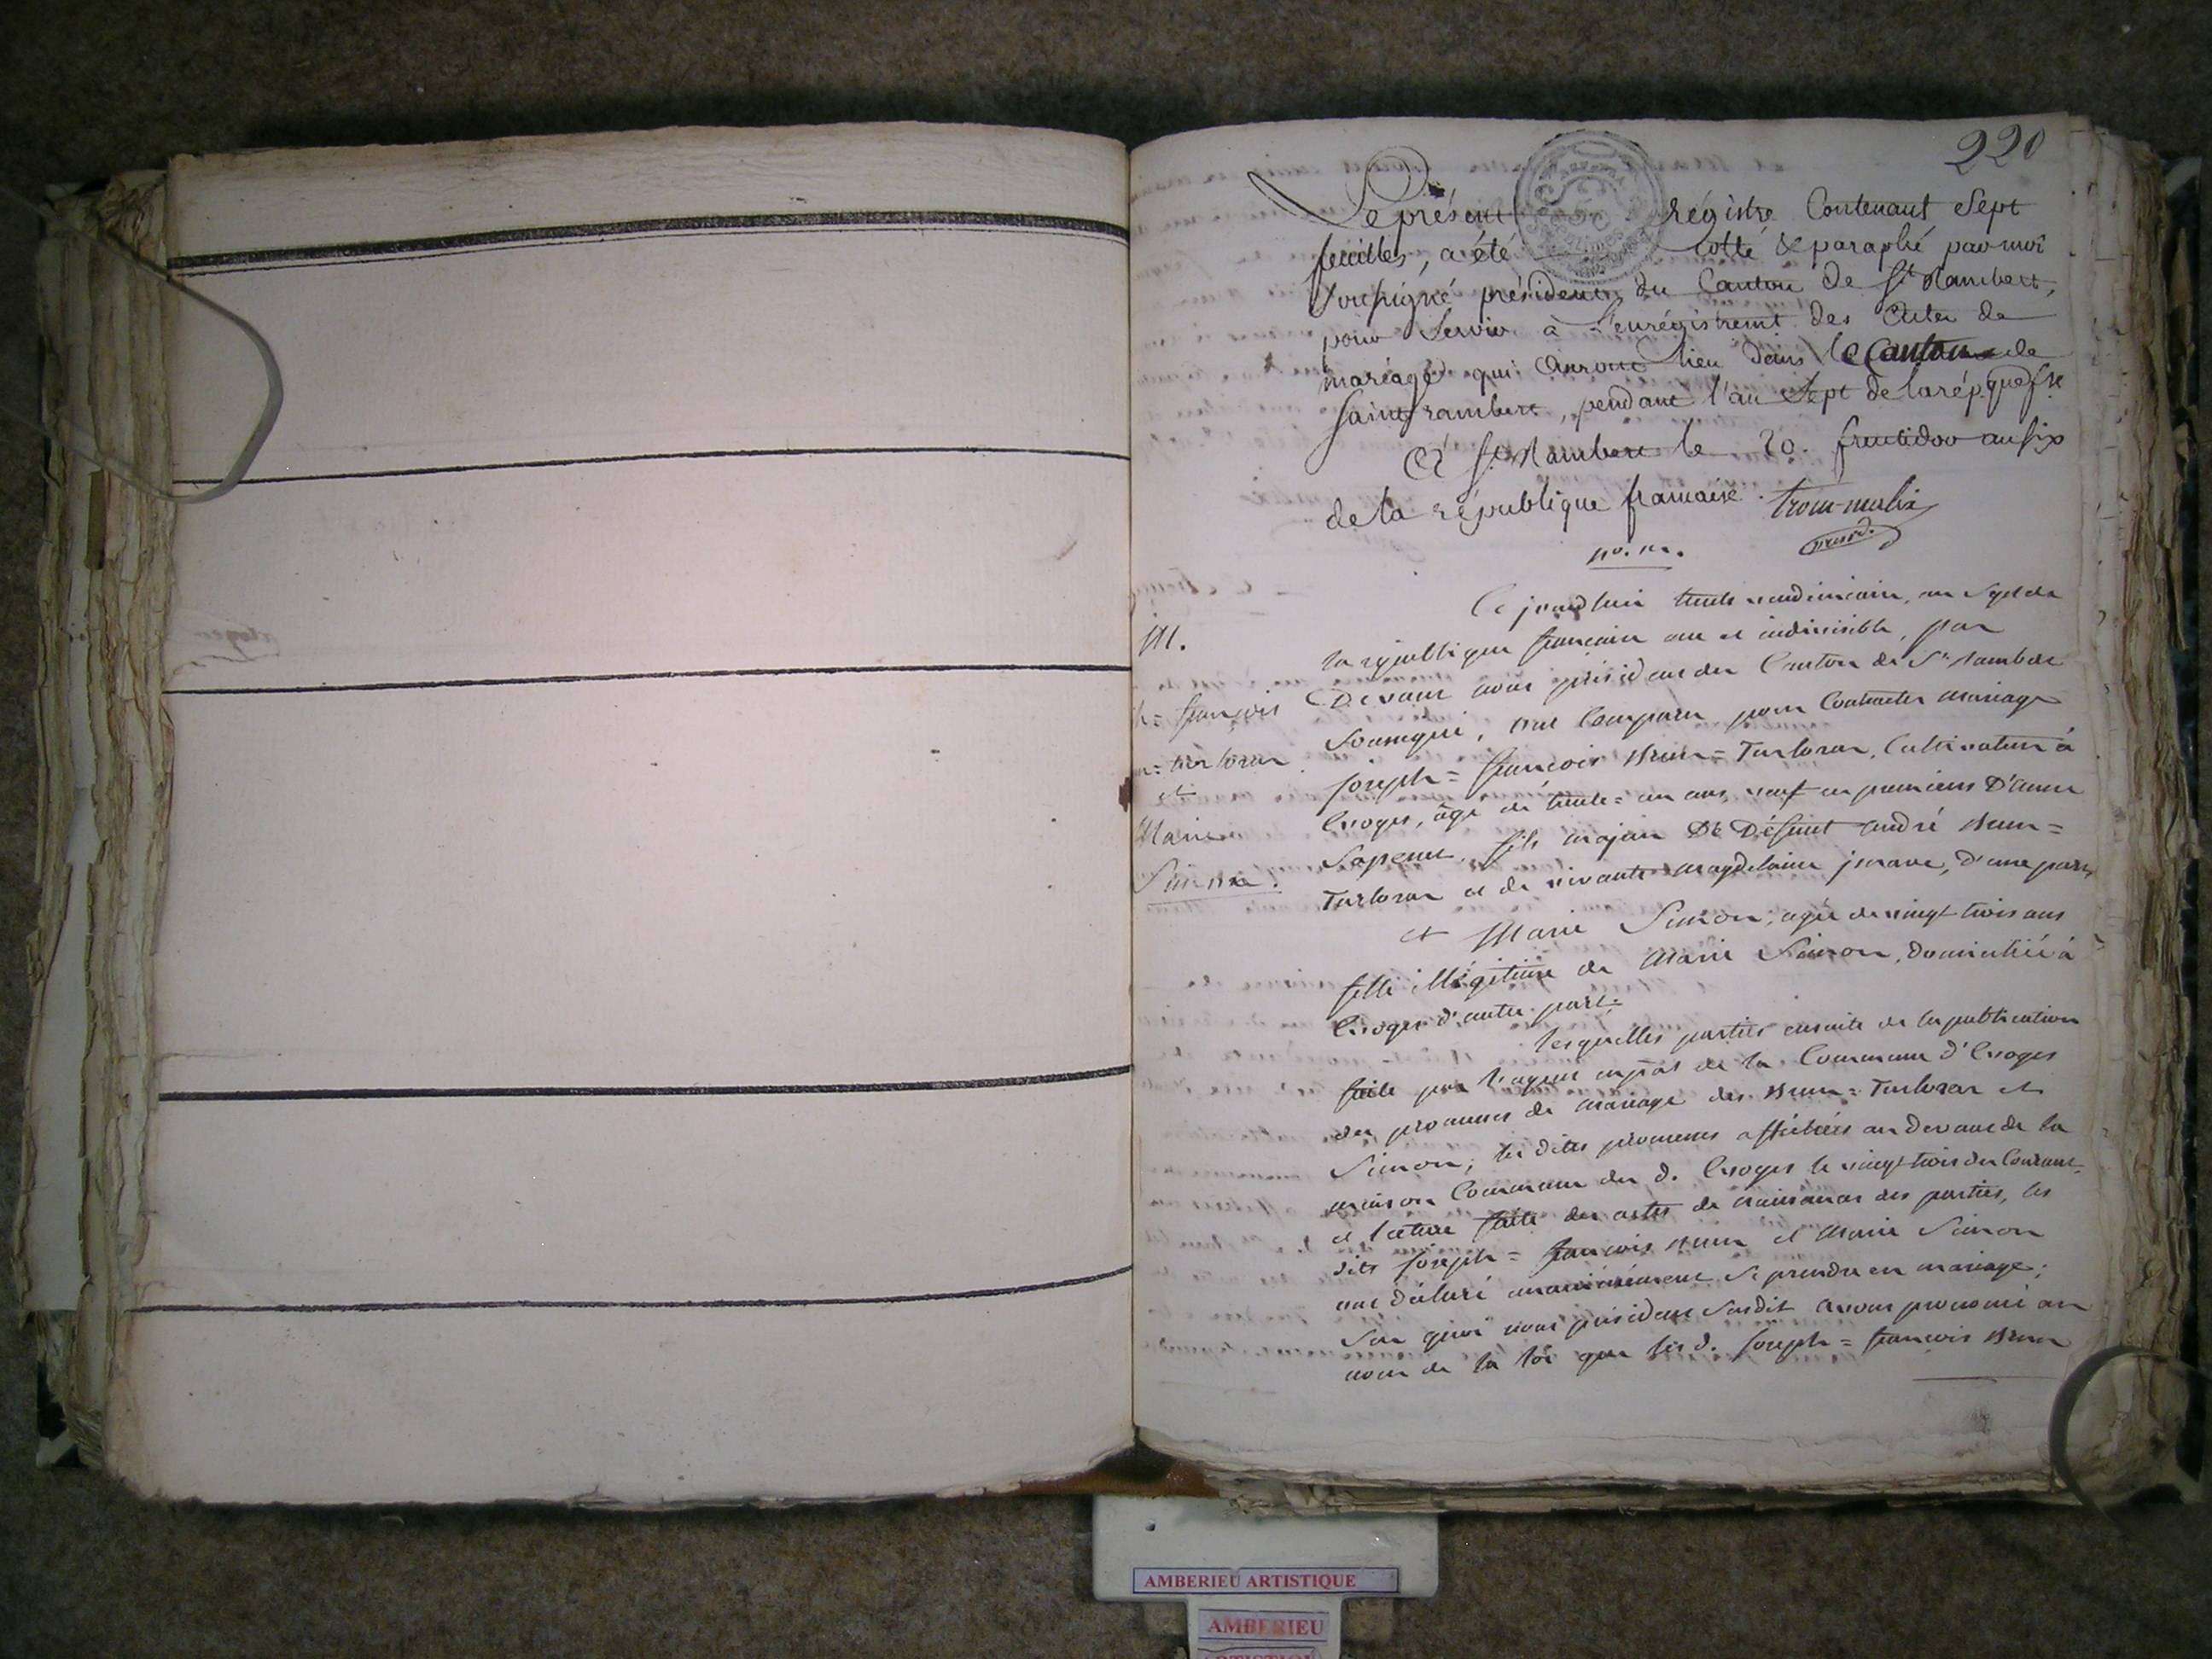 220
Le présent régistre Contenant Sept
feuilles, a été cotté & paraphé par moi
Soussigné président du Canton de St Rambert,
pour Servir à l'enrégistremt des Actes de
mariage qui auront lieu dans le Canton de
Saint rambert, pendant l'an Sept de la rép.que fse
A St Rambert le 20. fructidor an six
de la république francaise.
Ce jourdhui trente vendémiaire, an Sept de
la république francaise une et indivisible, par
Devant nous président du Canton de St Rambert
Soussigné, ont Comparu pour Contracter mariage
Joseph = françois Brun = Turloran, Cultivateur à
Evoges, âgé de trente = un ans, veuf en premiers D'anne
fils majeur De Défunt andré Brun =
Turloran et de vivante magdelaine d'une part,
et Marie Simon, agée de vingt trois ans
fille illégitime de Marie Simon, domiciliée à
Evoges d'autre part.
lesquelles parties ensuite de la publication
faite par l'agent mpal de la Commune d'Evoges
des promesses de mariage des Brun = Turloran et
Simon, les dites promesses affichées au devant de la
maison Commune du d. Evoges le vingt trois du Courant
et lecture faite des actes de naissances des parties, les
dits Joseph = françois Brun et Marie Simon
ont déclaré unanimément Se prendre en mariage;
Sur quoi nous président Susdit avons prononcé au
nom de la loi que les d. Joseph = françois Brun
h = françois
n = turloran
et
Marie
Simon.
AMBERIEU ARTISTIQUE
AMBERIEU